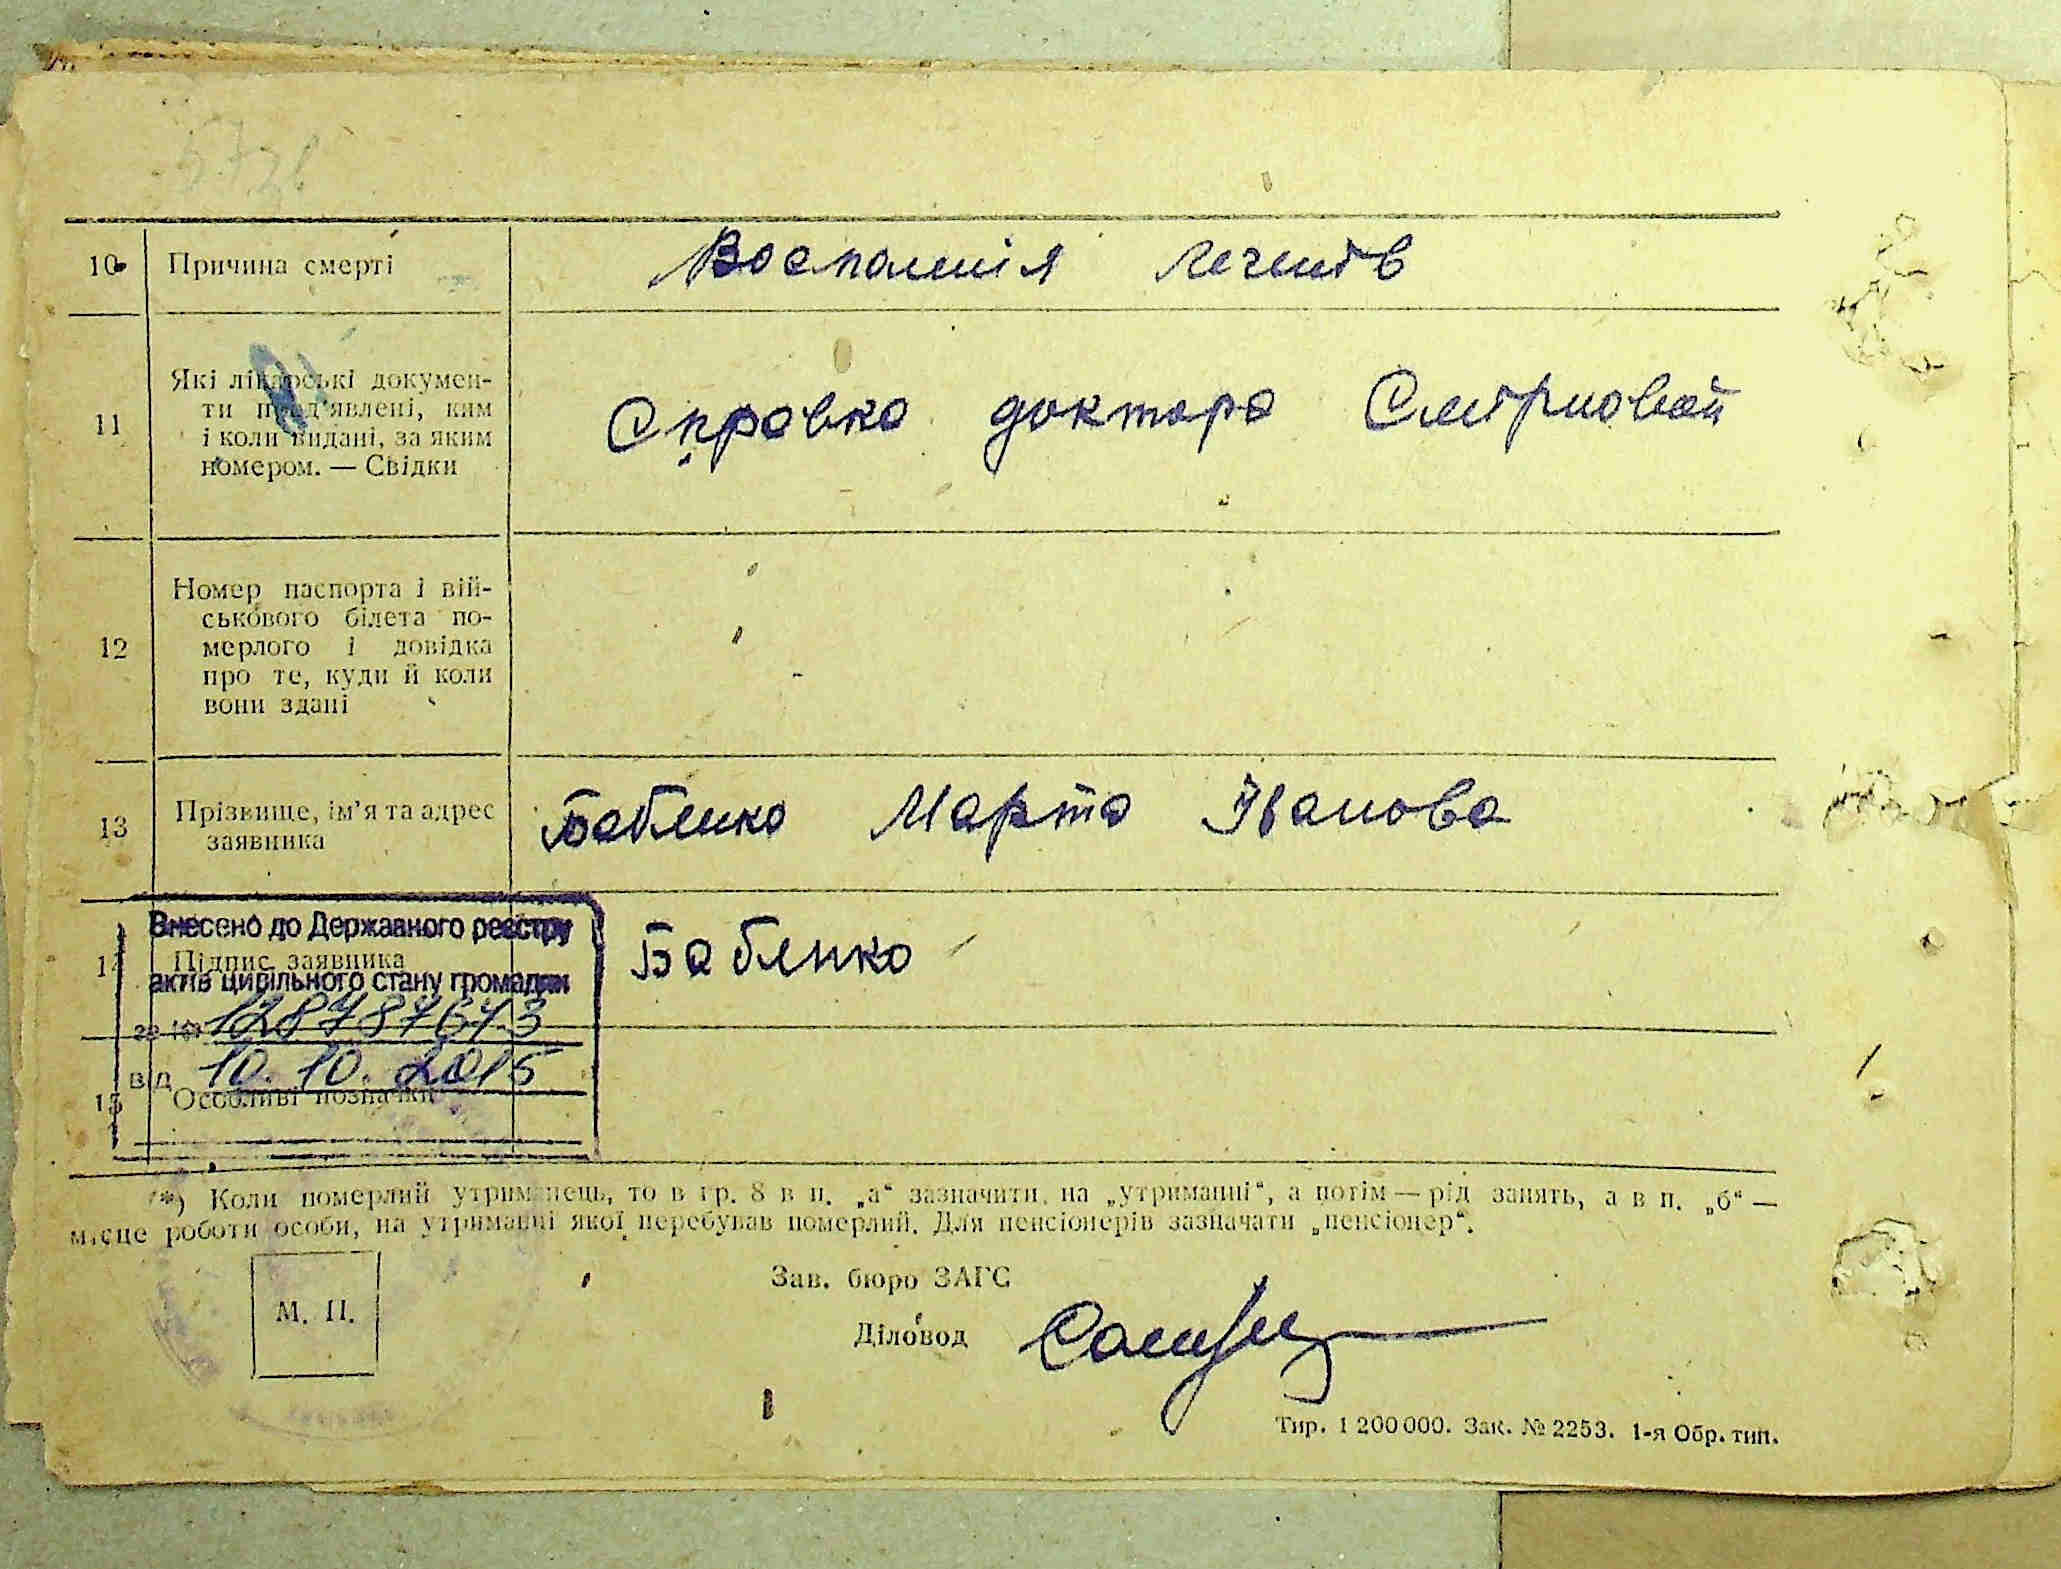 10. Причина смерті Воспаленія легенів
11 Які лікарські докумен-
ти пред'явлені, ким
і коли видані, за яким
номером. — Свідки
Справка доктора
12 Номер паспорта і вій-
ськового білета по-
мерлого і довідка
про те, куди й коли
вони здані
13 Прізвище, ім'я та адрес
заявника
Бабленко Марта Іванова
14 Підпис заявника Бабленко
Внесено до Державного реєстру
актів цивільного стану громадян
за № 12878767
від 10.10.2015
15 Особливі позначки
*) Коли померлий утриманець, то в гр. 8 в п. „а“ зазначити, на „утриманні“, а потім — рід занять, а в п. „б“ —
місце роботи особи, на утриманні якої перебував померлий. Для пенсіонерів зазначати „пенсіонер“.
М. П.
Зав. бюро ЗАГС
Діловод
Тир. 1 200 000. Зак. № 2253. 1-я Обр. тип.